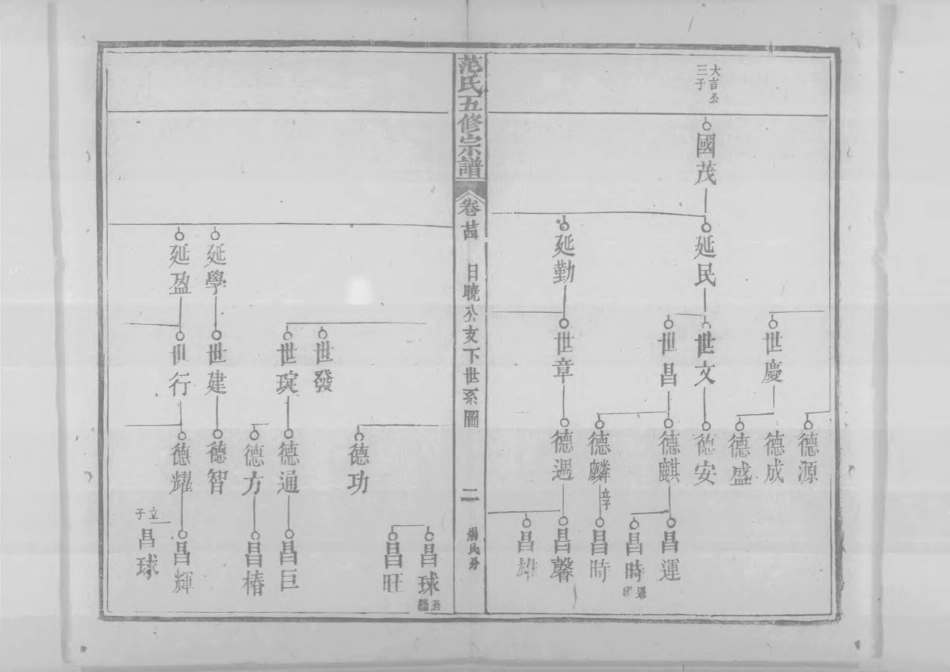 大吉公
三子
國茂
延民
延勤
世慶
世文
世昌
世章
德源
德成
德盛
德安
德麒
德麟
德週
昌運
昌時
昌時
昌馨
昌雄
范氏五修宗譜
卷苖
日曉公支下世系圖
二
世發
世琔
延學
延盈
世建
世行
德功
德通
德方
德智
德耀
昌球
昌旺
昌巨
昌椿
昌輝
立子
昌球